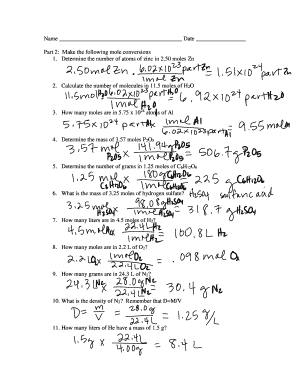 Name Date
Part 2: Make the following mole conversions
1. Determine the number of atoms of zinc in 2.50 moles Zn
2.50 mol Zn · 6.02×10²³ part Zn / 1 mol Zn = 1.51×10²⁴
2. Calculate the number of molecules in 11.5 moles of H₂O
11.5 mol H₂O 6.02×10²³ part / 1 mol H₂O = 6.92×10²⁴ part H₂O
3. How many moles are in 5.75 x 10²⁴ atoms of Al
5.75×10²⁴ part Al × 1 mol Al / 6.02×10²³ part Al = 9.55 mol Al
4. Determine the mass of 3.57 moles P₂O₅
3.57 mol P₂O₅ × 141.94 g P₂O₅ / 1 mol P₂O₅ = 506.7 g P₂O₅
5. Determine the number of grams in 1.25 moles of C₆H₁₂O₆
1.25 mol C₆H₁₂O₆ × 180 g C₆H₁₂O₆ / 1 mol C₆H₁₂O₆ = 225 g C₆H₁₂O₆
6. What is the mass of 3.25 moles of hydrogen sulfate? H₂SO₄ sulfuric acid
3.25 mol H₂SO₄ × 98.08 g H₂SO₄ / 1 mol H₂SO₄ = 318.7 g H₂SO₄
7. How many liters are in 4.5 moles of H₂?
4.5 mol H₂ × 22.4 L H₂ / 1 mol H₂ = 100.8 L H₂
8. How many moles are in 2.2 L of O₂?
2.2 L O₂ × 1 mol O₂ / 22.4 L O₂ = .098 mol O₂
9. How many grams are in 24.3 L of N₂?
24.3 L N₂ × 28.0 g N₂ / 22.4 L N₂ = 30.4 g N₂
10. What is the density of N₂? Remember that D=M/V
D = m / V = 28.0 g / 22.4 L = 1.25 g/L
11. How many liters of He have a mass of 1.5 g?
1.5 g × 22.4 L / 4.00 g = 8.4 L